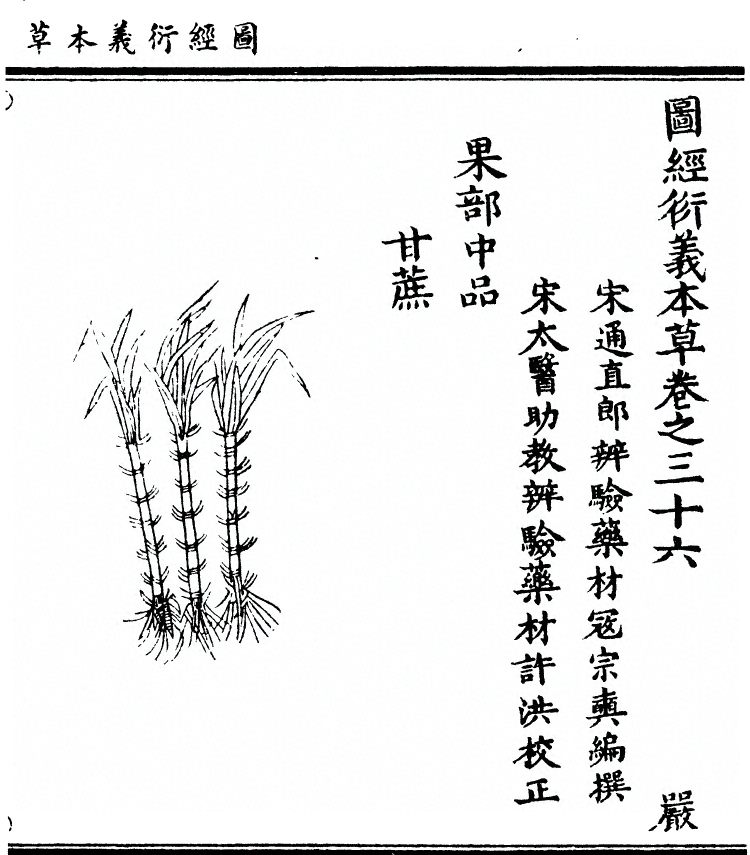 圖經衍義本草
圖經衍義本草卷之三十六
嚴
宋通直郎辨驗藥材冦宗奭編撰
宋太醫助教辨驗藥材許洪校正
果部中品
甘蔗